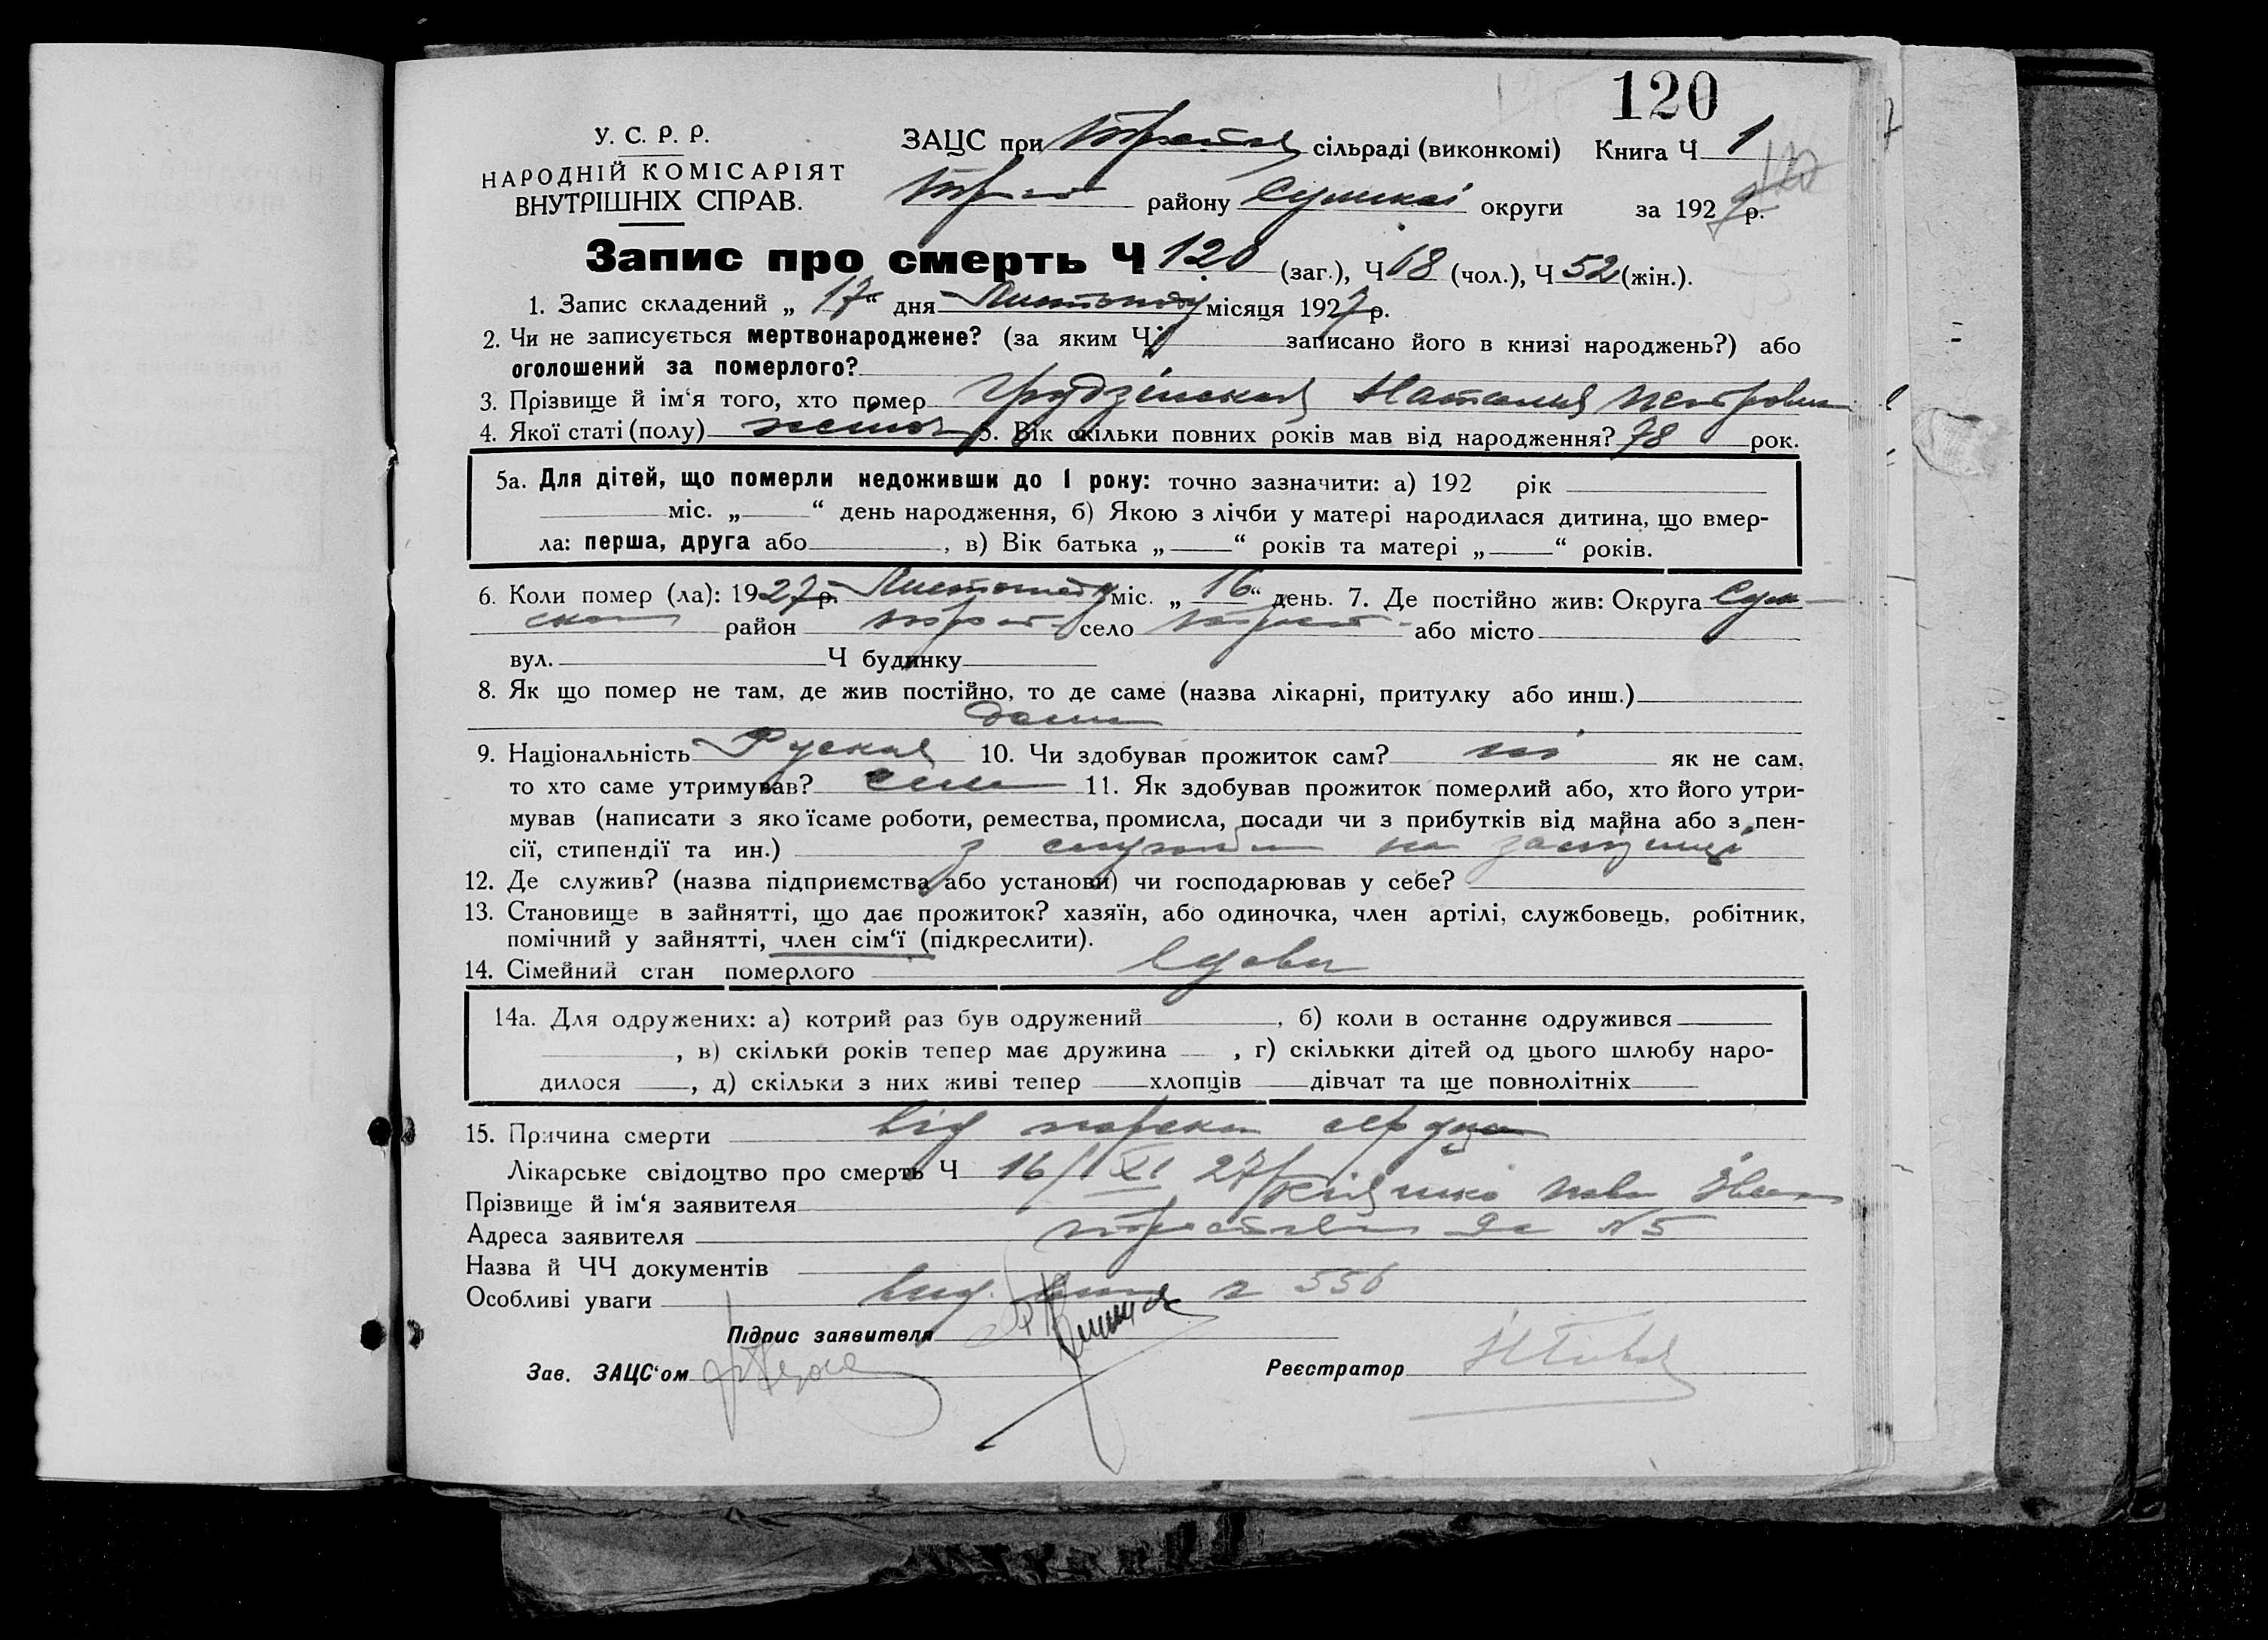 120
У. С. Р. Р.
НАРОДНІЙ КОМІСАРІЯТ
ВНУТРІШНІХ СПРАВ.
ЗАЦС при сільраді (виконкомі) Книга Ч 1
району Сумської округи за 1927 р.
120
Запис про смерть Ч 120 (заг.), Ч 68 (чол.), Ч 52 (жін.).
1. Запис складений „ 17 “ дня Листопаду місяця 1927 р.
2. Чи не записується мертвонароджене? (за яким Ч записано його в книзі народжень?) або
оголошений за померлого?
3. Прізвище й ім‘я того, хто помер Грудзінская Наталия Петровна
4. Якої статі (полу) жіноч 5. Вік скільки повних років мав від народження? 78 рок.
5а. Для дітей, що померли недоживши до 1 року: точно зазначити: а) 192 рік
міс. „ “ день народження, б) Якою з лічби у матері народилася дитина, що вмер-
ла: перша, друга або , в) Вік батька „ “ років та матері „ “ років.
6. Коли помер (ла): 1927 р. Листопаду міс. „ 16 “ день. 7. Де постійно жив: Округа Сум-
ська район село або місто
вул. Ч будинку
8. Як що помер не там, де жив постійно, то де саме (назва лікарні, притулку або инш.)
дома
9. Національність Руская 10. Чи здобував прожиток сам? ні як не сам,
то хто саме утримував? 11. Як здобував прожиток померлий або, хто його утри-
мував (написати з яко їсаме роботи, ремества, промисла, посади чи з прибутків від майна або з пен-
сії, стипендії та ин.) з служби на
12. Де служив? (назва підприємства або установи) чи господарював у себе?
13. Становище в зайнятті, що дає прожиток? хазяїн, або одиночка, член артілі, службовець, робітник,
помічний у зайнятті, член сім‘ї (підкреслити).
14. Сімейний стан померлого вдова
14а. Для одружених: а) котрий раз був одружений , б) коли в останнє одружився
, в) скільки років тепер має дружина , г) скількки дітей од цього шлюбу наро-
дилося , д) скільки з них живі тепер хлопців дівчат та ще повнолітніх
15. Причина смерти від порока сердца
Лікарське свідоцтво про смерть Ч 16/XI 27
Прізвище й ім‘я заявителя
Адреса заявителя № 5
Назва й ЧЧ документів
Особливі уваги 556
Підпис заявителя
Зав. ЗАЦС‘ом Реєстратор